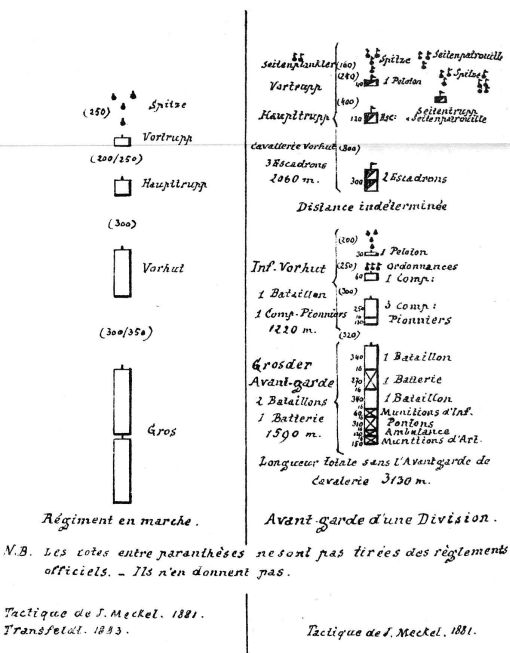 (250)
Spitze
Vortrupp
(200/250)
Haupttrupp
(300)
Vorhut
(300/350)
Gros
Régiment en marche.
Seitenplänkler (160) Spitze Seitenpatrouille
(240)
Vortrupp 40 1 Peloton Spitze
(400)
Haupttrupp 120 Esc: Seitentrupp
Seitenpatrouille
Cavallerie Vorhut (800)
3 Escadrons
2060 m.
300 2 Escadrons
Distance indéterminée
(200)
30 1 Peloton
Inf. Vorhut (250) Ordonnances
60 1 Comp:
1 Bataillon (300)
1 Comp-Pionniers 250 3 Comp:
1220 m. Pionniers
(320)
Grosder 340 1 Bataillon
16
Avant-garde 270 1 Batterie
16
2 Bataillons 340 1 Bataillon
16
1 Batterie 60 Munitions d'Inf.
1590 m. 310 Pontons
Ambulance
150 Munitions d'Art.
Longueur totale sans l'Avantgarde de
Cavalerie 3130 m.
Avant-garde d'une Division.
N.B. Les cotes entre paranthèses ne sont pas tirées des règlements
officiels. - Ils n'en donnent pas.
Tactique de J. Meckel. 1881.
Transfeldt. 1883.
Tactique de J. Meckel. 1881.